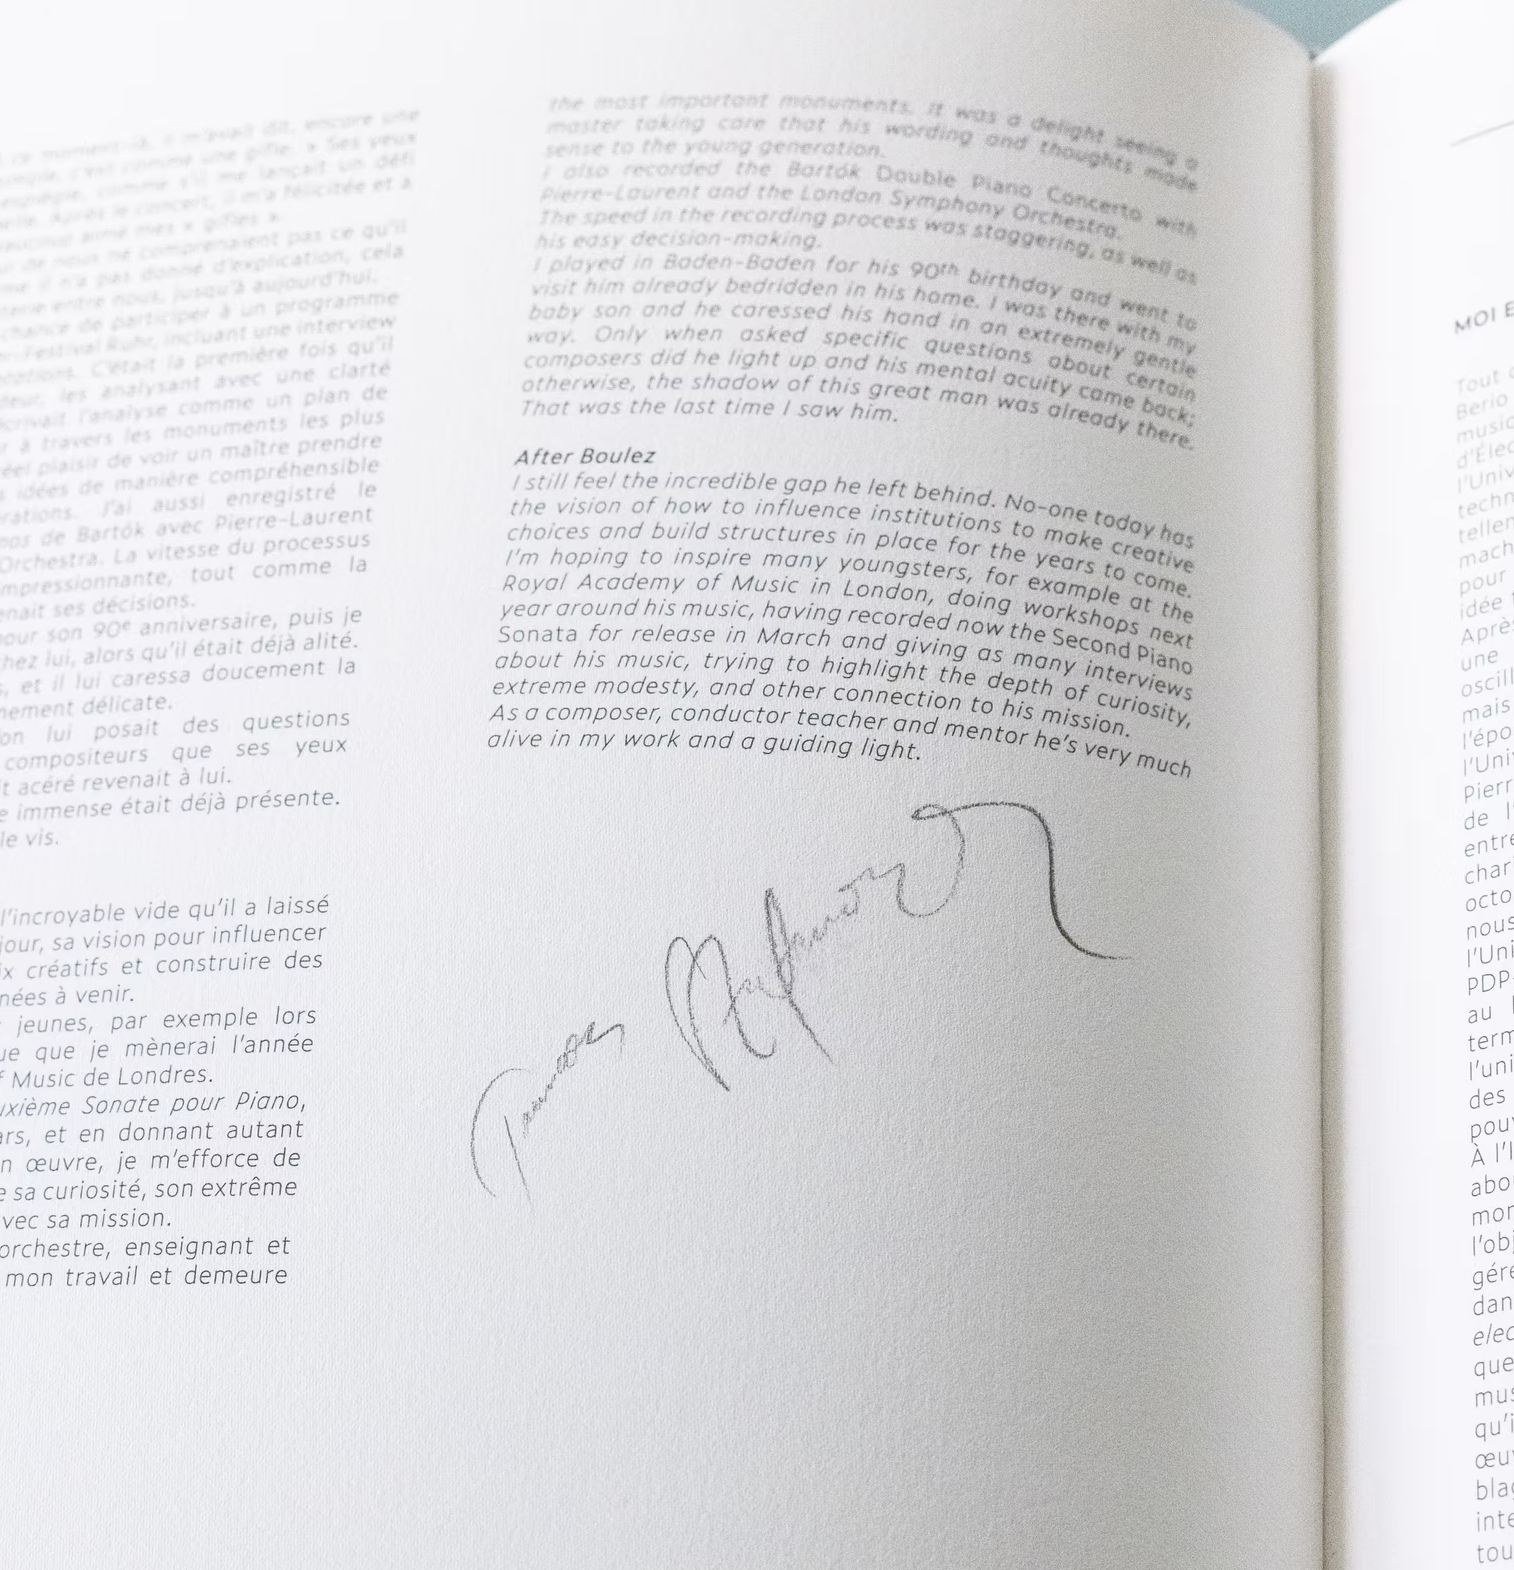 ce moment-là, il m'avait dit, encore une
c'est comme une gifle. » Ses yeux
comme s'il me lançait un défi
Après le concert, il m'a félicitée et a
aimé mes « gifles ».
de nous ne comprenaient pas ce qu'il
il n'a pas donné d'explication, cela
entre nous, jusqu'à aujourd'hui.
chance de participer à un programme
Festival Ruhr, incluant une interview
C'était la première fois qu'il
les analysant avec une clarté
l'analyse comme un plan de
à travers les monuments les plus
réel plaisir de voir un maître prendre
idées de manière compréhensible
J'ai aussi enregistré le
de Bartók avec Pierre-Laurent
Orchestra. La vitesse du processus
impressionnante, tout comme la
ses décisions.
pour son 90e anniversaire, puis je
chez lui, alors qu'il était déjà alité.
et il lui caressa doucement la
délicate.
lui posait des questions
compositeurs que ses yeux
acéré revenait à lui.
immense était déjà présente.
le vis.
l'incroyable vide qu'il a laissé
jour, sa vision pour influencer
créatifs et construire des
à venir.
jeunes, par exemple lors
que je mènerai l'année
Music de Londres.
Sonate pour Piano,
et en donnant autant
œuvre, je m'efforce de
sa curiosité, son extrême
sa mission.
orchestre, enseignant et
mon travail et demeure
the most important monuments. It was a delight seeing a
master taking care that his wording and thoughts made
sense to the young generation.
I also recorded the Bartók Double Piano Concerto with
Pierre-Laurent and the London Symphony Orchestra.
The speed in the recording process was staggering, as well as
his easy decision-making.
I played in Baden-Baden for his 90th birthday and went to
visit him already bedridden in his home. I was there with my
baby son and he caressed his hand in an extremely gentle
way. Only when asked specific questions about certain
composers did he light up and his mental acuity came back;
otherwise, the shadow of this great man was already there.
That was the last time I saw him.
After Boulez
I still feel the incredible gap he left behind. No-one today has
the vision of how to influence institutions to make creative
choices and build structures in place for the years to come.
I'm hoping to inspire many youngsters, for example at the
Royal Academy of Music in London, doing workshops next
year around his music, having recorded now the Second Piano
Sonata for release in March and giving as many interviews
about his music, trying to highlight the depth of curiosity,
extreme modesty, and other connection to his mission.
As a composer, conductor teacher and mentor he's very much
alive in my work and a guiding light.
MOI E
Tout
Berio
music
d'Élec
l'Univ
techn
tellen
mach
pour
idée
Après
une
oscill
mais
l'épo
l'Univ
Pierr
de l'
entre
char
octo
nous
l'Uni
PDP-
au
term
l'uni
des
pouv
À l'I
abo
mon
l'obj
gére
dan
elec
que
mus
qu'i
œuv
blag
inte
tou